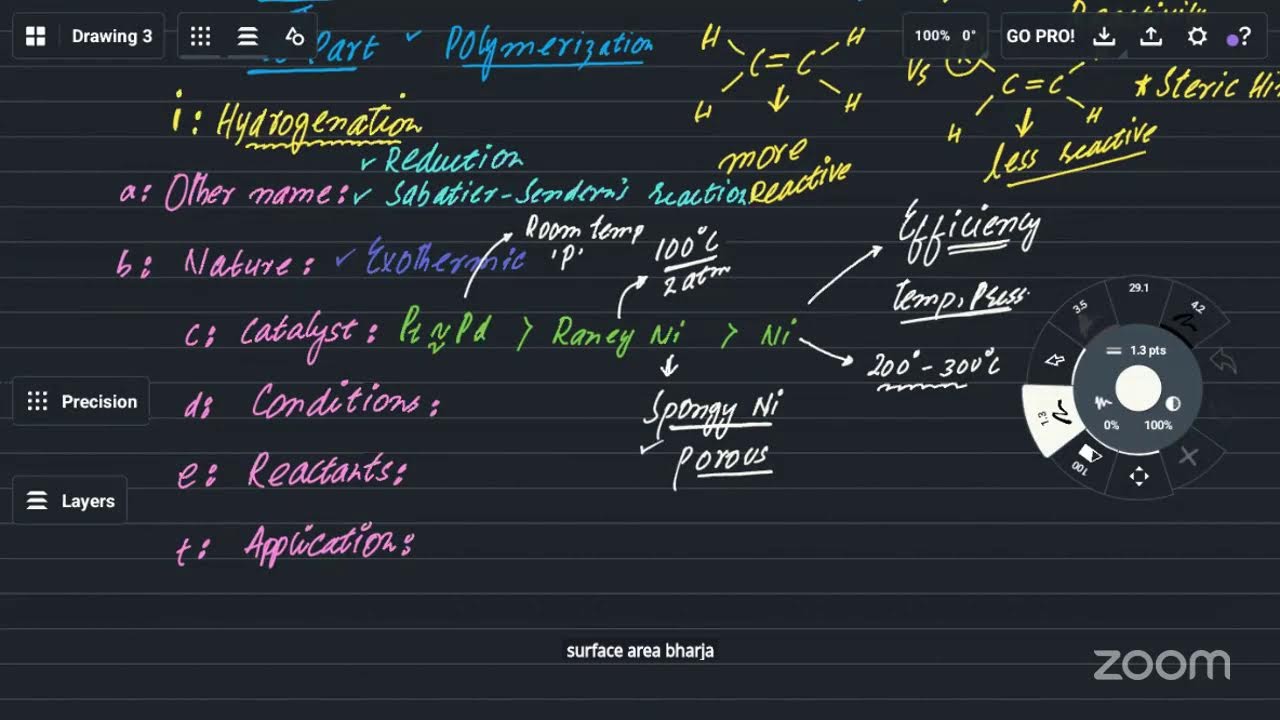 Drawing 3
100% 0° GO PRO! ?
Part ✓ Polymerization
H H
C=C
H H
Vs
C=C
H H
* Steric Hi
more Reactive
less reactive
i: Hydrogenation
✓ Reduction
a: Other name: ✓ Sabatier-Sendern's reaction
Room temp
'P'
100°C
2 atm
Efficiency
temp, Press.
b: Nature: ✓ Exothermic
c: Catalyst: Pt ≈ Pd > Raney Ni > Ni
200° - 300°C
Spongy Ni
✓ porous
d: Conditions:
e: Reactants:
f: Application:
Precision
Layers
29.1
3.5
4.2
1.3 pts
1.3
0% 100%
100
surface area bharja
zoom